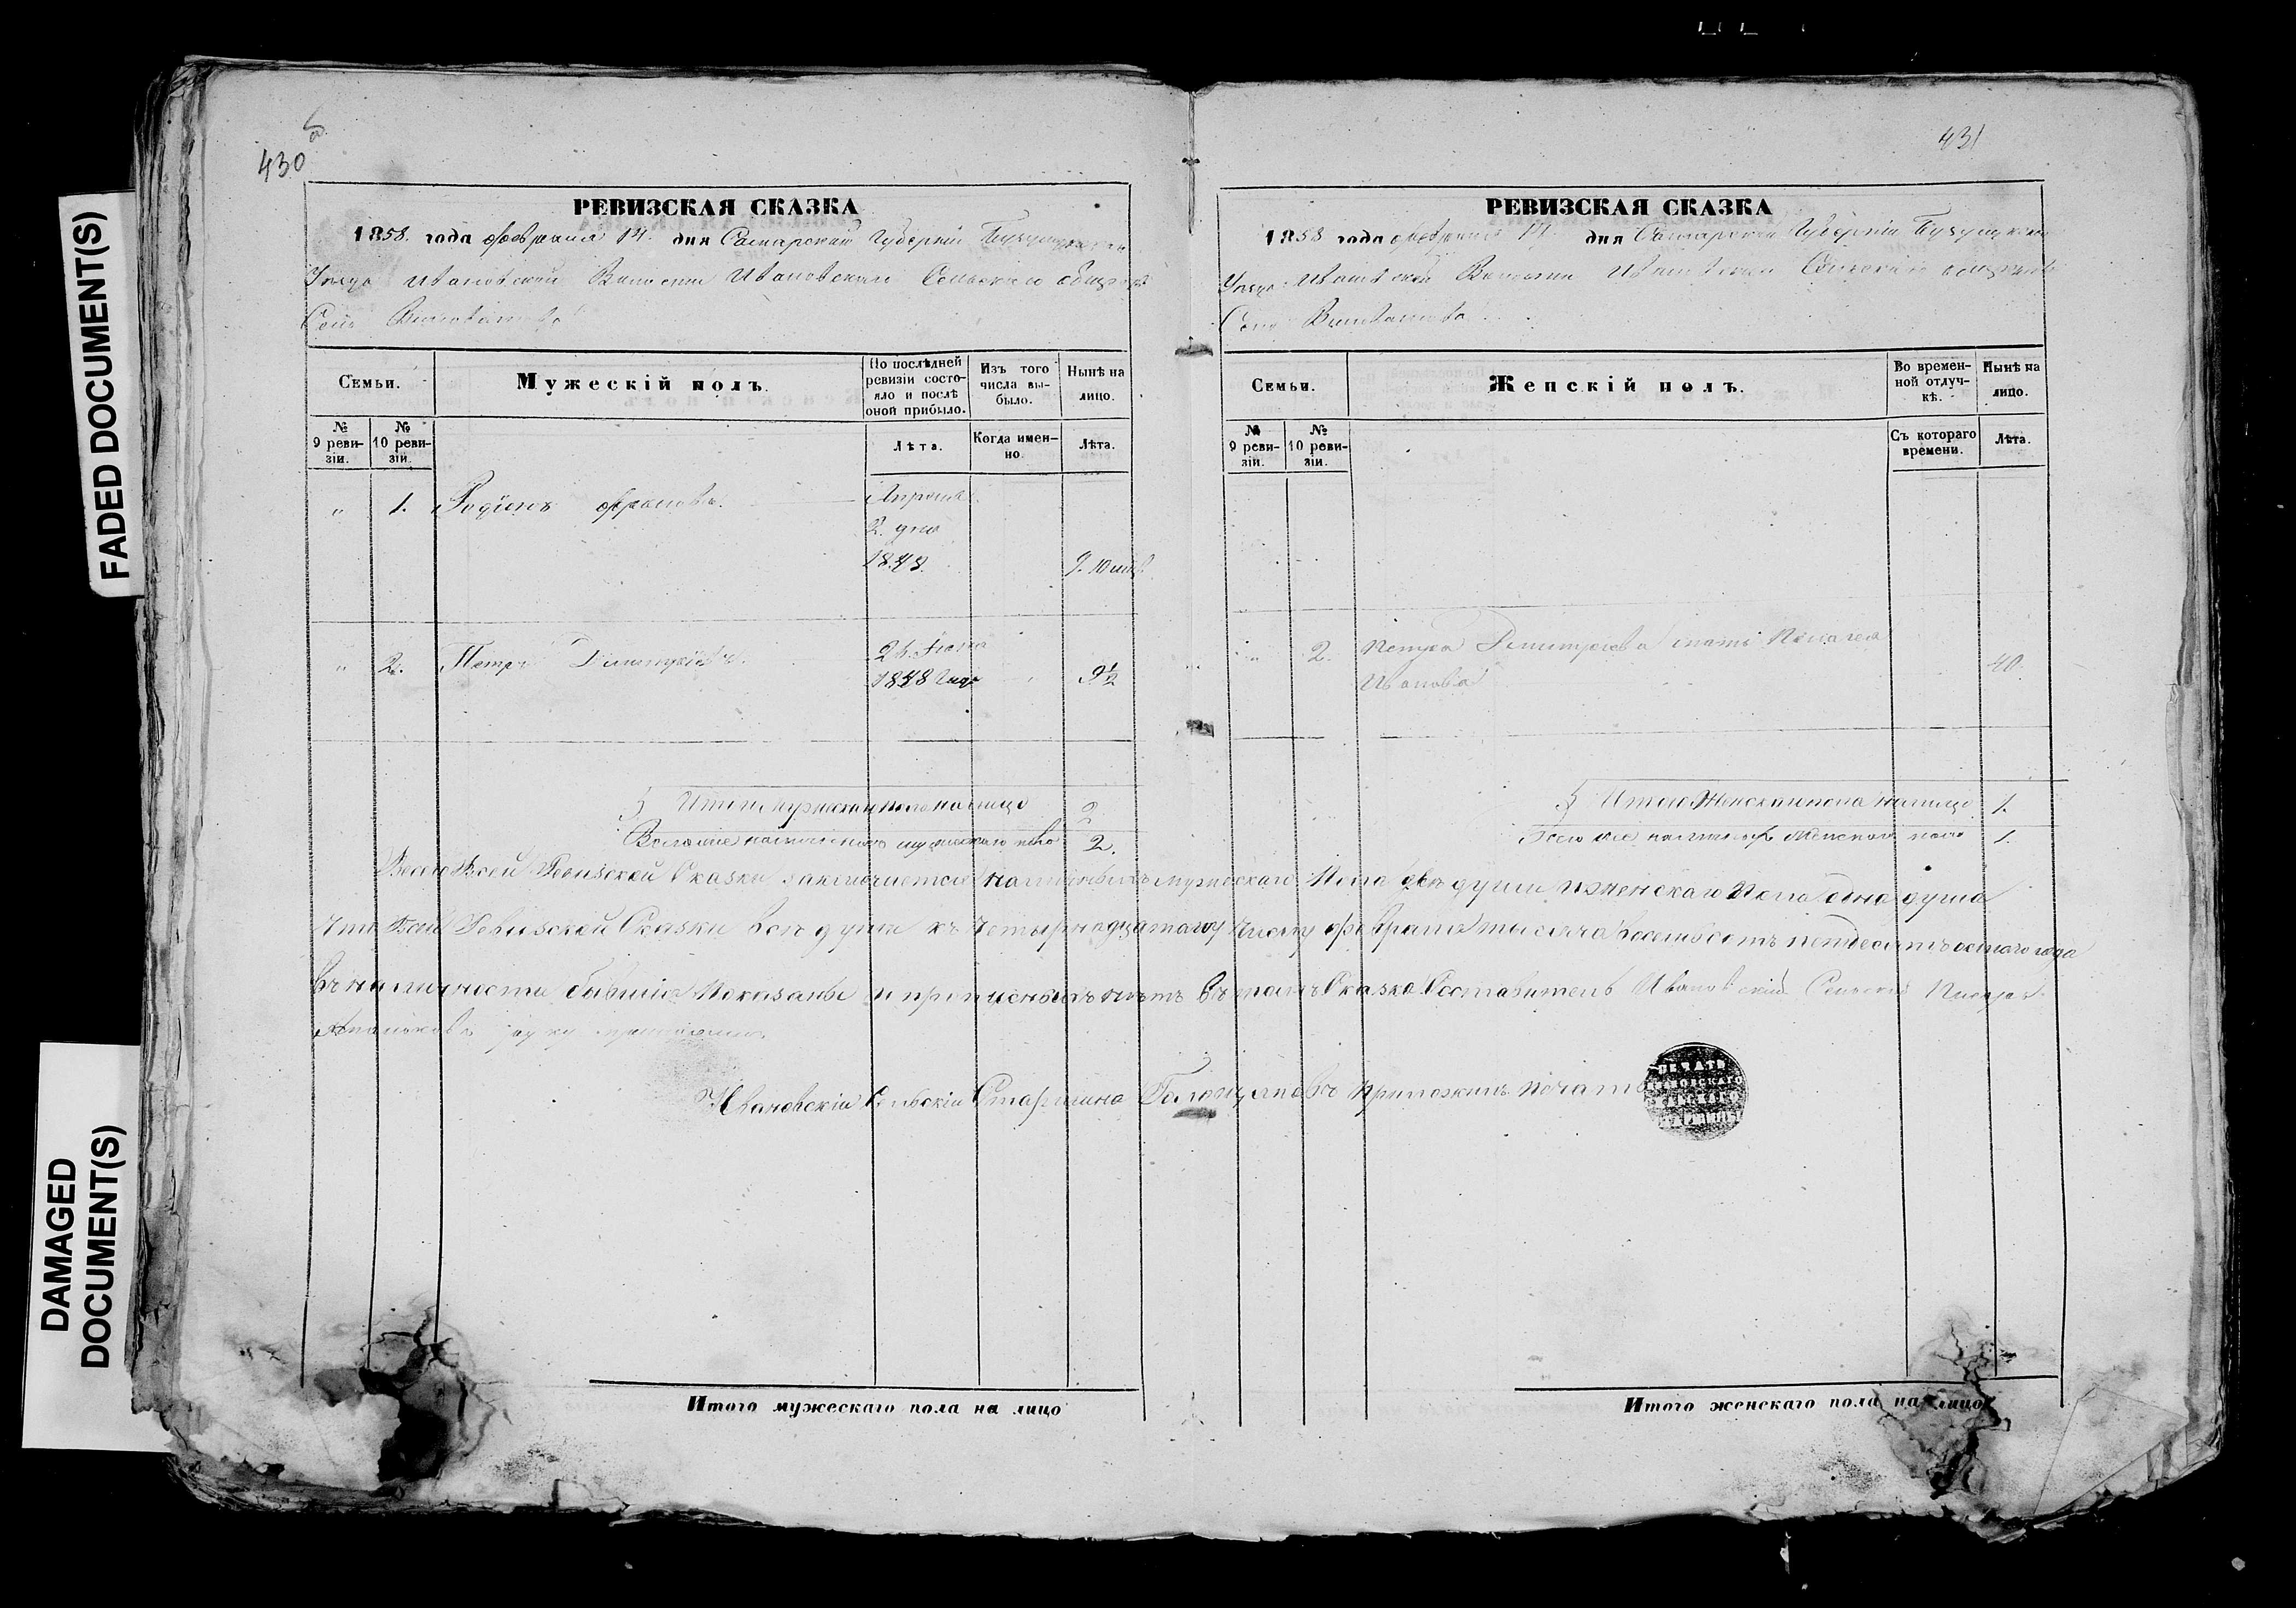 FADED DOCUMENT(S)
DAMAGED
DOCUMENT(S)
430
431
РЕВИЗСКАЯ СКАЗКА
1858. года февраля 14. дня Самарской Губернии Бузулукскаго
Уезда Ивановской Волости Ивановскаго Сельскаго общества
Села
Семьи.
Мужескій полъ.
По послѣдней
ревизіи состо-
яло и послѣ
оной прибыло.
Изъ того
числа вы-
было.
Нынѣ на
лицо.
№
9 реви-
зіи.
№
10 реви-
зіи.
Лѣта.
Когда имен-
но.
Лѣта.
" 1. Родіонъ
Апреля
2. дня
1848.
9. 10 мѣс.
" 2. Петръ Димитріевъ.
1848 года
9½
Итого мужескаго пола на лицо 2
мужескаго пола 2.
РЕВИЗСКАЯ СКАЗКА
1858 года февраля 14 дня Самарской Губерніи Бузулукскаго
Уезда Ивановской Волости Ивановскаго Сельскаго общества
Села
Семьи.
Женскій полъ.
Во времен-
ной отлуч-
кѣ.
Нынѣ на
лицо.
№
9 реви-
зіи.
№
10 реви-
зіи.
Съ котораго
времени.
Лѣта.
" 2. Петра Димитріева мать Пелагея
Иванова
40.
Итого Женскаго пола на лицо 1.
Всего же наличныхъ Женскаго пола 1.
Всего Въ сей Ревизской Сказки заключается наличныхъ мужескаго Пола две души и женскаго Пола одна душа
Что Всей Ревизской Сказки все души къ Четырнадцатому Числу февраля тысяча восемьсотъ пятдесятъ осмаго года
въ наличности бывшіе Показаны и прописныхъ нетъ въ томъ Сказка Составитель Ивановскій Сельскій Писарь
руку приложилъ
Ивановскій Сельскій Старшина приложилъ печать
ПЕЧАТЬ
Итого мужескаго пола на лицо
Итого женскаго пола на лицо